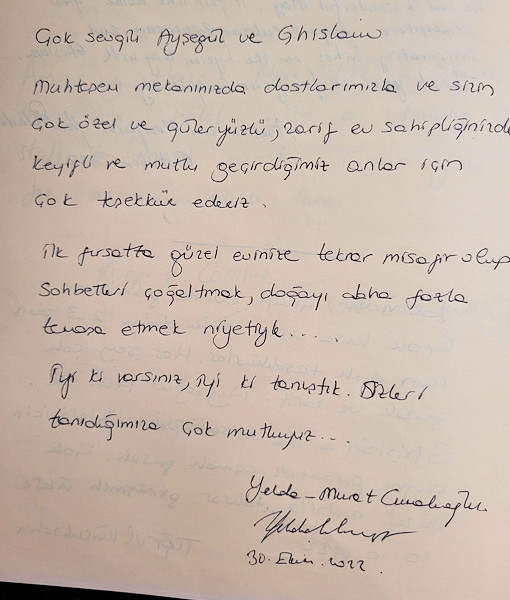 Çok sevgili Ayşegül ve Ghislain
Muhteşem mekanınızda dostlarımızla ve sizin
Çok özel ve güleryüzlü, zarif ev sahipliğinizde
keyifli ve mutlu geçirdiğimiz anlar için
Çok teşekkür ederiz.
İlk fırsatta güzel evinize tekrar misafir olup
Sohbetleri çoğaltmak, doğayı daha fazla
temasa etmek niyetiyle.....
İyi ki varsınız, iyi ki tanıştık. Sizleri
tanıdığımıza çok mutluyuz...
Yelda-Murat
30.Ekim.2022.